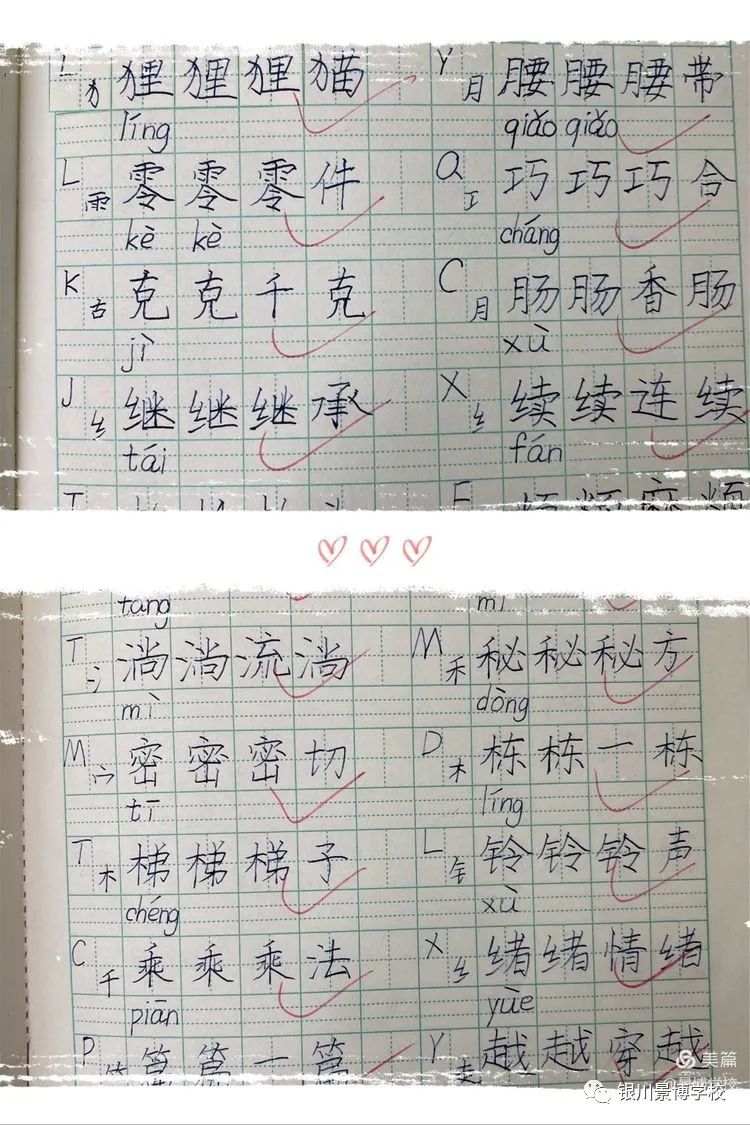 L 犭 狸 狸 狸 猫 Y 月 腰 腰 腰 带
líng qiǎo qiǎo
L 雨 零 零 零 件 Q 工 巧 巧 巧 合
kè kè cháng
K 古 克 克 千 克 C 月 肠 肠 香 肠
jì xù
J 纟 继 继 继 承 X 纟 续 续 连 续
tái fán
tang mì
T 氵 淌 淌 流 淌 M 禾 秘 秘 秘 方
mì dòng
M 宀 密 密 密 切 D 木 栋 栋 一 栋
tī líng
T 木 梯 梯 梯 子 L 钅 铃 铃 铃 声
chéng xù
C 千 乘 乘 乘 法 X 纟 绪 绪 情 绪
piān yùe
P 篇 篇 一 篇 Y 走 越 越 穿 越
美篇
银川景博学校